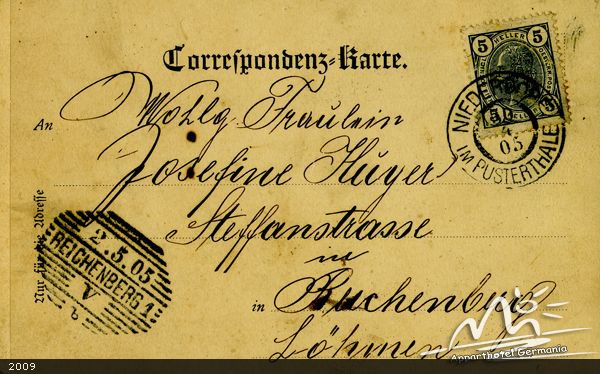 Correspondenz-Karte.
5 HELLER 5
An Wohlg Fräulein
Josefine Kluger
Steffanstrasse
in
in Reichenberg
Böhmen
Nur für die Adresse
2.5.05
REICHENBERG 1
V
b
NIED
05
IM PUSTERTHALE
Apparthotel Germania
2009